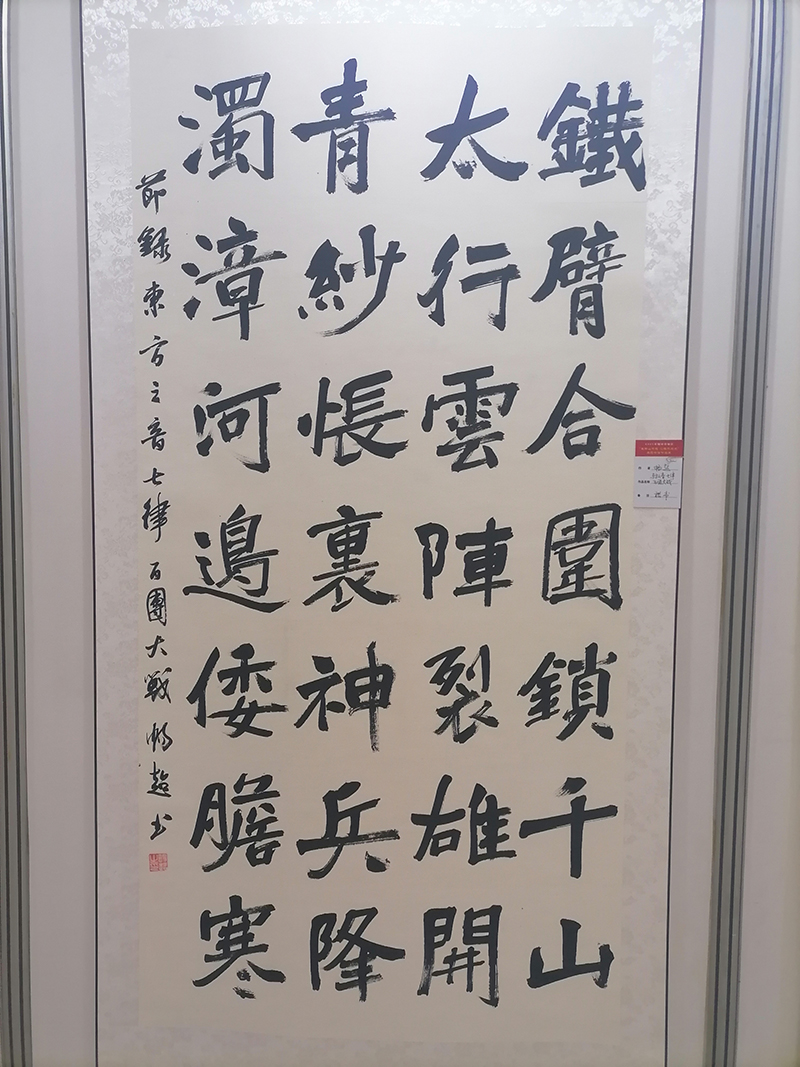 鐵臂合圍鎖千山
太行雲陣裂雄開
青紗帳裏神兵隆
濁漳河邊倭膽寒
節錄東方之音七律百團大戰 暢超书